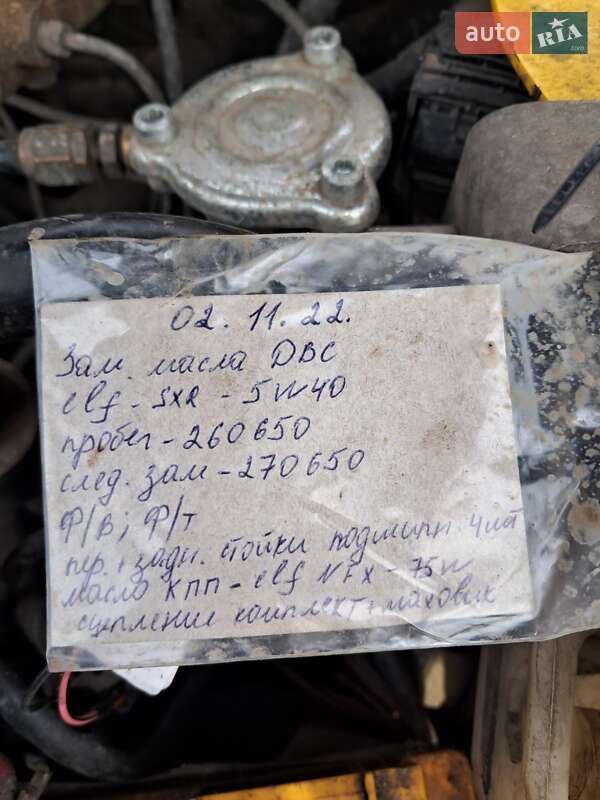 auto RIA .com
02.11.22.
Зам. масла ДВС
elf - SXR - 5W40
пробег - 260650
след. зам - 270650
Ф/В; Ф/т
пер. + задн. стойки подшипн. 4шт
масло КПП - elf NFX - 75W
сцепление комплект + маховик